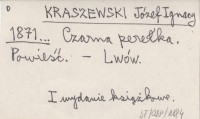 D
KRASZEWSKI Józef Ignacy
1871... Czarna perełka.
Powieść. – Lwów.
I wydanie książkowe.